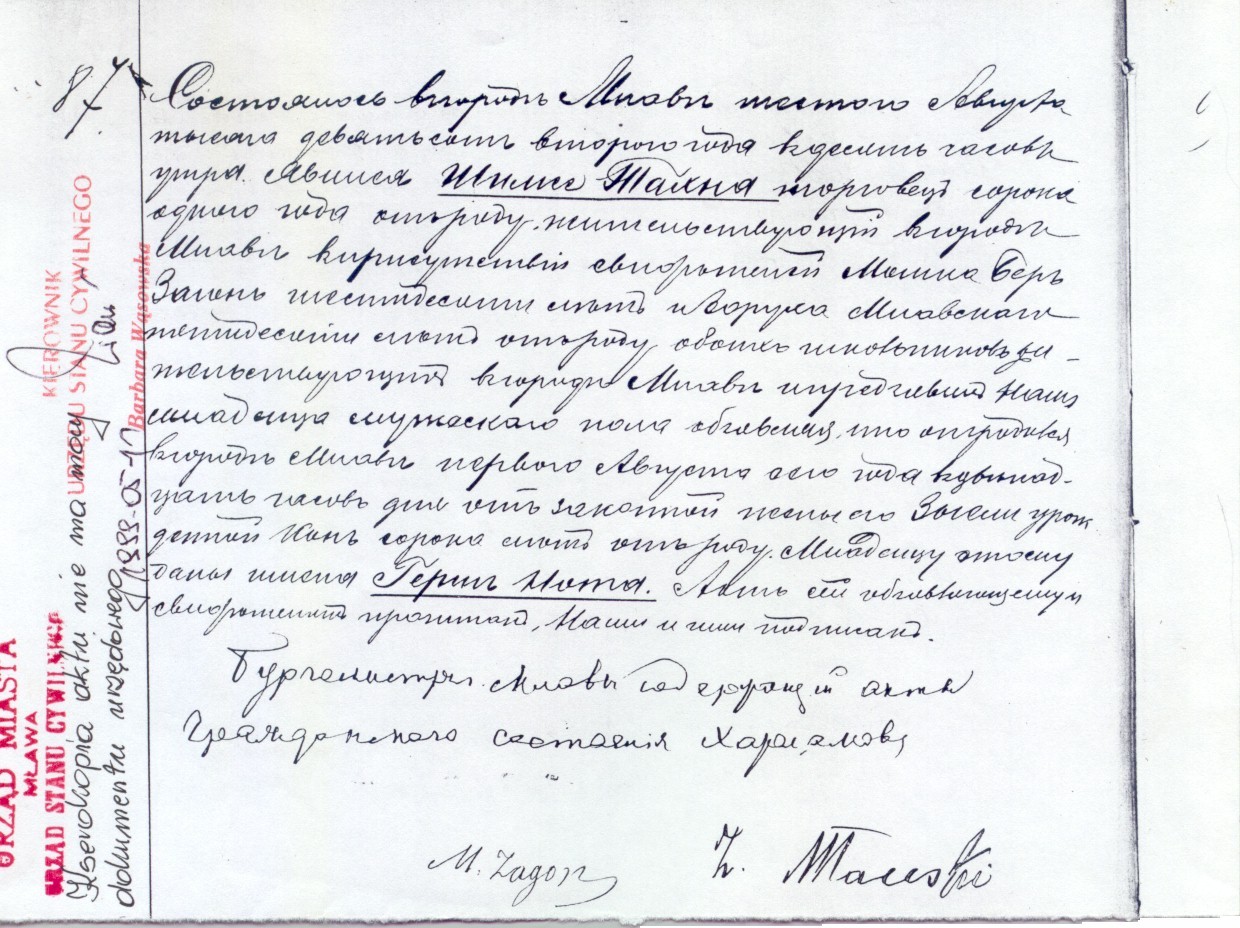 87.
Состоялось въ городѣ Млавѣ шестого Августа
тысяча девятьсотъ второго года въ десять часовъ
утра. Явился Шлиме Тахна торговецъ сорока
одного года отъ роду, жительствующій въ городѣ
Млавѣ въ присутствіи свидѣтелей Мошка Беръ
Загонъ шестидесяти лѣтъ и Боруха Млавскаго
лѣтъ отъ роду, обоихъ школьниковъ жи-
тельствующихъ въ городѣ Млавѣ и предъявилъ Намъ
младенца мужескаго пола объявляя, что онъ родился
въ городѣ Млавѣ перваго Августа сего года въ двѣнад-
цать часовъ дня отъ законной жены его урож
денной Конъ сорока лѣтъ отъ роду. Младенцу этому
даны имена Герш Нота. Актъ сей объявляющему
свидѣтелямъ прочитанъ, Нами и ими подписанъ.
Бургомистръ г. Млавы содержащій акты
Гражданского состоянія
M. Zagon
Mławski
URZĄD MIASTA
MŁAWA
URZĄD STANU CYWILNEGO
Kserokopia aktu nie ma mocy
dokumentu urzędowego
KIEROWNIK
URZĘDU STANU CYWILNEGO
Barbara Wąsowska